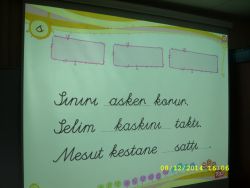 s
Sınırı asker korur.
Selim kaskını taktı.
Mesut kestane sattı.
08/12/2014 16:06